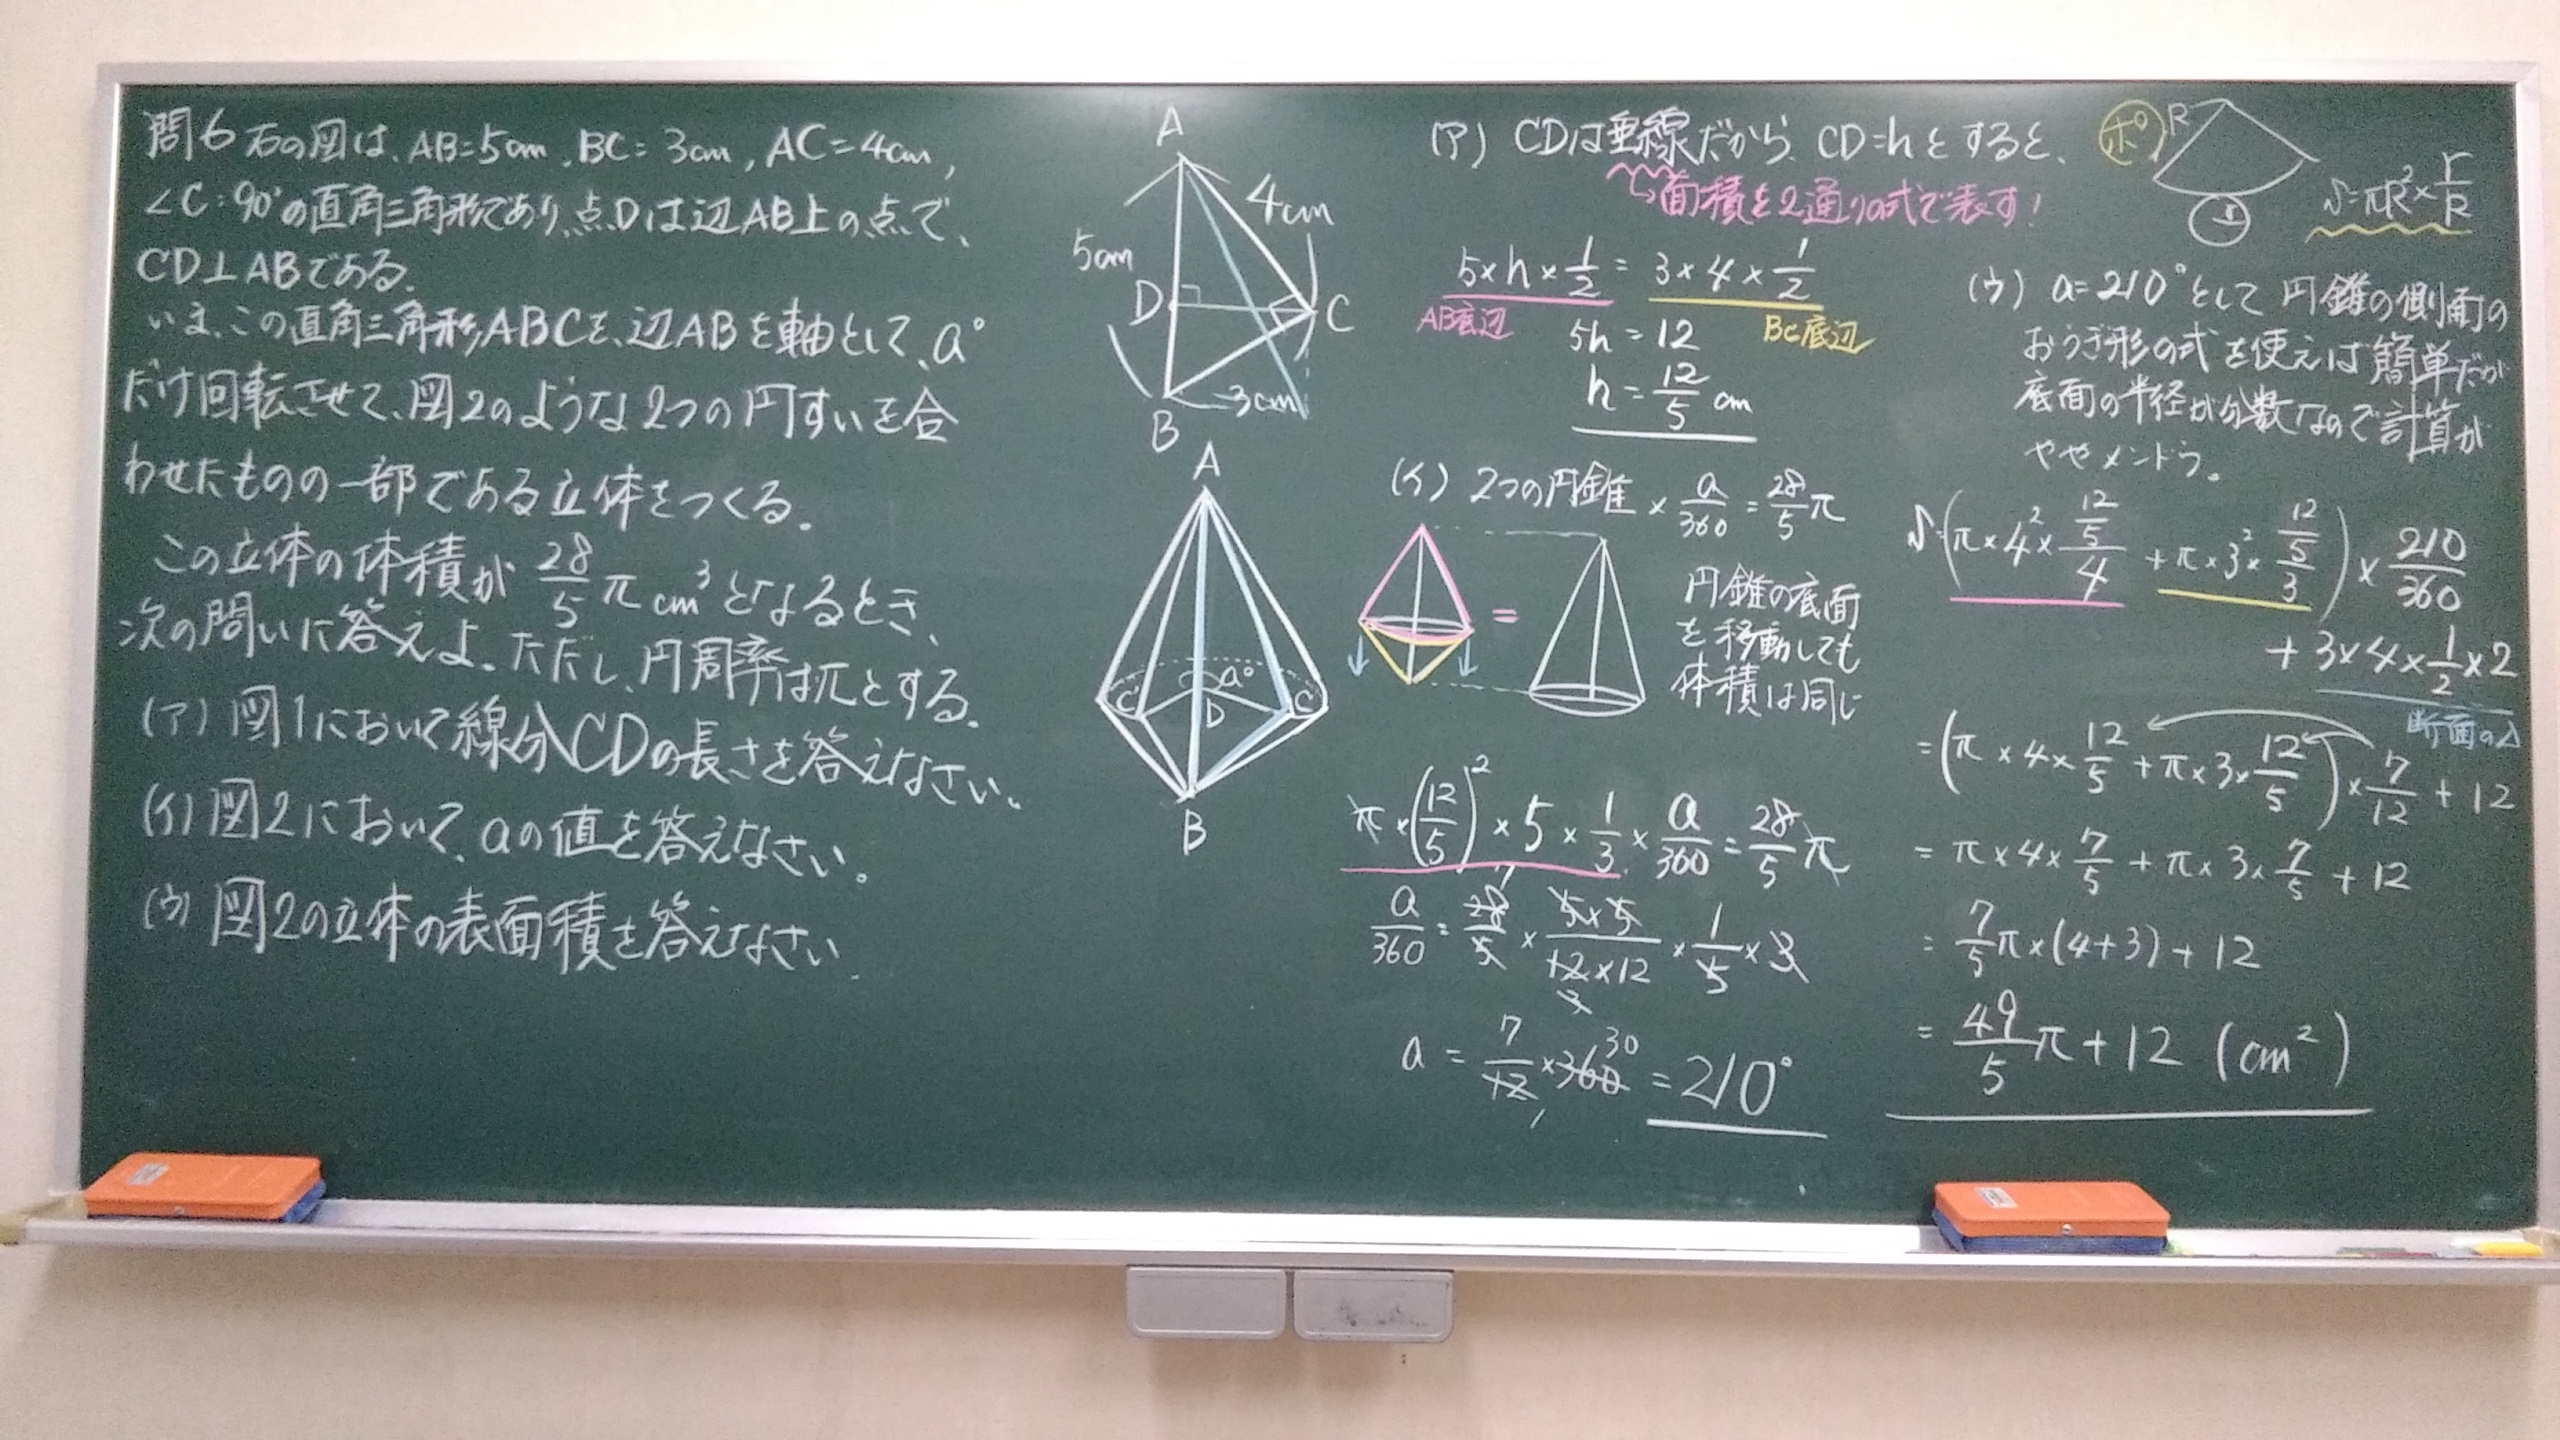 問6 右の図は、AB=5cm、BC=3cm, AC=4cm,
∠C=90°の直角三角形であり、点Dは辺AB上の点で、
CD⊥ABである。
いま、この直角三角形ABCを、辺ABを軸として、a°
だけ回転させて、図2のような2つの円すいを合
わせたものの一部である立体をつくる。
この立体の体積が 28/5 π cm³となるとき、
次の問いに答えよ。ただし、円周率はπとする。
(ア) 図1において線分CDの長さを答えなさい。
(イ) 図2において、aの値を答えなさい。
(ウ) 図2の立体の表面積を答えなさい
A
4cm
5cm
D
C
3cm
B
A
a°
C
D
C
B
(ア) CDは垂線だから、CD=hとすると、
↳面積を2通りの式で表す!
5×h×1/2 = 3×4×1/2
AB底辺 BC底辺
5h = 12
h = 12/5 cm
(イ) 2つの円錐 × a/360 = 28/5 π
=
円錐の底面
を移動しても
体積は同じ
π×(12/5)²×5×1/3×a/360 = 28/5 π
a/360 = 28/5 × 5×5/12×12 × 1/5 × 3
7
3
a = 7/12 × 360 = 210°
30
1
ポ
R
r
S=πR²×r/R
(ウ) a=210°として 円錐の側面の
おうぎ形の式を使えば簡単だが
底面の半径が分数なので計算が
ややメンドウ。
S=(π×4²×12/5/4 + π×3²×12/5/3)×210/360
+ 3×4×1/2×2
断面の△
= (π×4×12/5 + π×3×12/5)×7/12 + 12
= π×4×7/5 + π×3×7/5 + 12
= 7/5 π×(4+3) + 12
= 49/5 π + 12 (cm²)